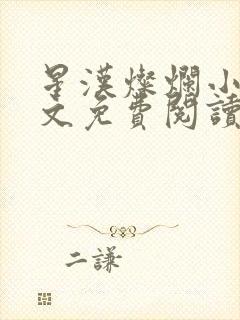 星漢燦爛小
文免費閱讀
二謙